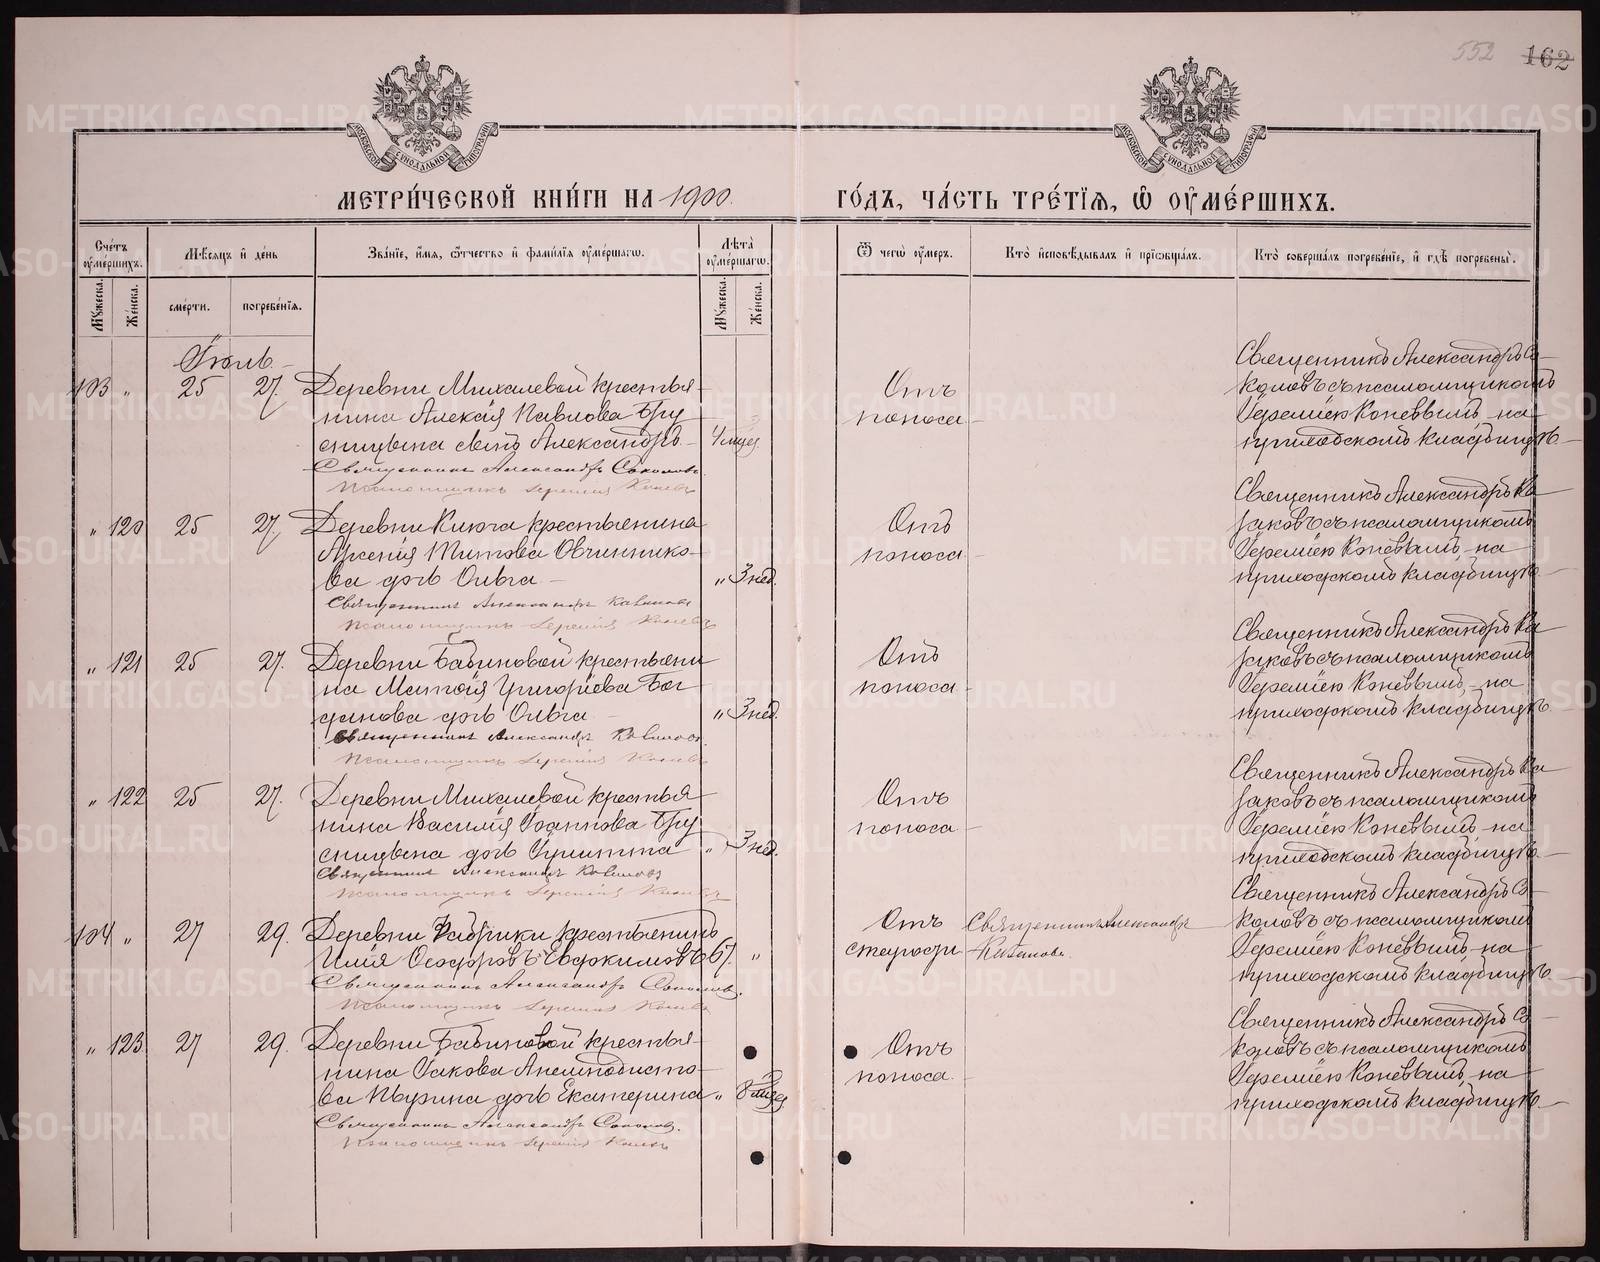 552 162
МОСКОВСКОЙ СѴНОДАЛЬНОЙ ТИПОГРАФІИ
МОСКОВСКОЙ СѴНОДАЛЬНОЙ ТИПОГРАФІИ
МЕТРИ́ЧЕСКОЙ КНИ́ГИ НА 1900. ГО́ДЪ, ЧА́СТЬ ТРЕ́ТІѦ, Ѡ ОУМЕ́РШИХЪ.
Сче́тъ оуме́ршихъ.
Мѣ́сяцъ и҆ де́нь
Зва́нїе, и҆́мя, ѻ҆́тчество и҆ фами́лїя оуме́ршагѡ.
Лѣ́та оуме́ршагѡ.
Ѿ чегѡ̀ оу́меръ.
Кто̀ и҆сповѣ́дывалъ и҆ прїѡбща́лъ.
Кто̀ соверша́лъ погребе́нїе, и҆ гдѣ̀ погребены̀.
Мꙋ́жеска. Же́нска. сме́рти. погребе́нїя. Мꙋ́жеска. Же́нска.
Іюль.
103 " 25 27. Деревни Михалевой крестья-
нина Алексія Павлова Бру
сницына сынъ Александръ 4 мѣс.
Священникъ Александръ Соколовъ
Псаломщикъ Іеремія Коневъ
Отъ
поноса
Священникъ Александръ Со-
коловъ съ псаломщикомъ
Іереміею Коневымъ, на
приходскомъ кладбищѣ.
" 120 25 27. Деревни Ключа крестьянина
Арсенія Титова Овчиннико-
ва дочь Ольга " 3 нед.
Священникъ Александръ
Псаломщикъ Іеремія Коневъ
Отъ
поноса
Священникъ Александръ Ка
заковъ съ псаломщикомъ
Іереміею Коневымъ, на
приходскомъ кладбищѣ.
" 121 25 27. Деревни Бабиновой крестьяни
на Матѳія Григоріева Бог
данова дочь Ольга " 3 нед.
Священникъ Александръ
Псаломщикъ Іеремія Коневъ
Отъ
поноса
Священникъ Александръ Ка
заковъ съ псаломщикомъ
Іереміею Коневымъ, на
приходскомъ кладбищѣ.
" 122 25 27. Деревни Михалевой крестья
нина Василія Іоаннова Бру
сницына дочь Іулитта " 3 нед.
Священникъ Александръ
Псаломщикъ Іеремія Коневъ
Отъ
поноса
Священникъ Александръ Ка
заковъ съ псаломщикомъ
Іереміею Коневымъ, на
приходскомъ кладбищѣ.
104 " 27 29. Деревни Фабрики крестьянинъ
Илія Ѳеодоровъ Евфкимовъ 67. "
Священникъ Александръ Соколовъ.
Псаломщикъ Іеремія Коневъ
Отъ
старости
Священникъ Александръ
Священникъ Александръ Со-
коловъ съ псаломщикомъ
Іереміею Коневымъ, на
приходскомъ кладбищѣ.
" 123 27 29. Деревни Бабиновой крестья-
нина Іакова Анемподисто-
ва дочь Екатерина " 8 мѣс.
Священникъ Александръ Соколовъ.
Псаломщикъ Іеремія Коневъ
Отъ
поноса.
Священникъ Александръ Со-
коловъ съ псаломщикомъ
Іереміею Коневымъ, на
приходскомъ кладбищѣ.
METRIKI.GASO-URAL.RU